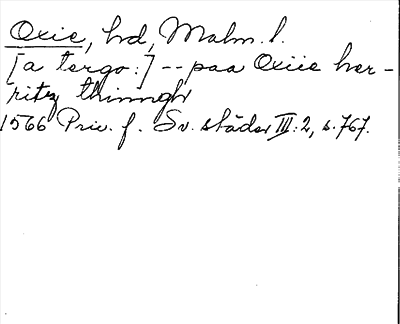 Oxie, hd, Malm. l.
[a tergo:] -- paa Oxiie her-
ritz thinngh
1566 Priv. f. Sv. städer III:2, s. 767.